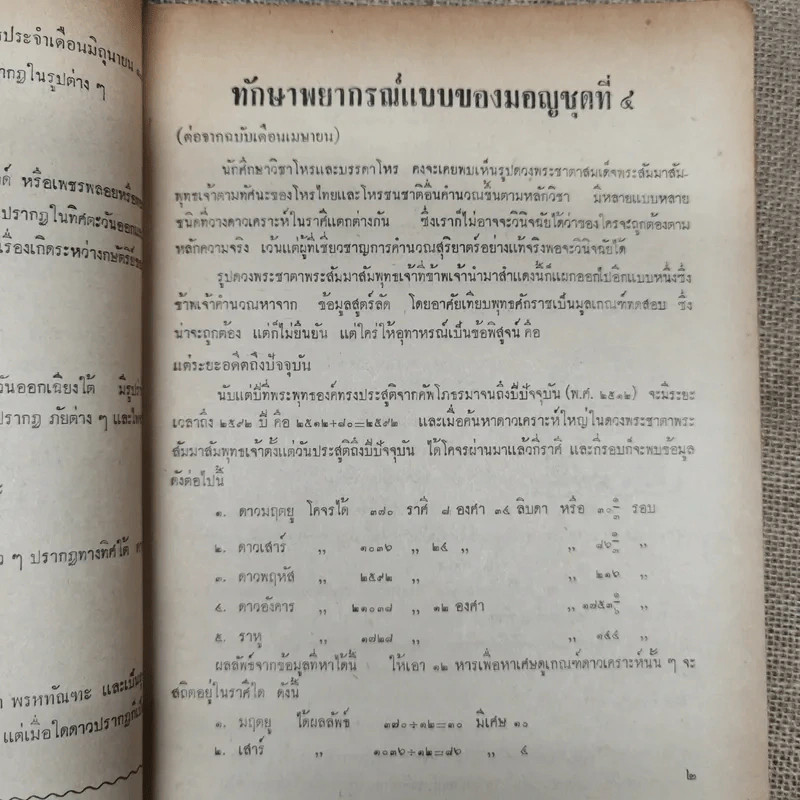 รประจำเดือนมิถุนายน
ากฏในรูปต่าง ๆ
หรือเพชรพลอยหรือ
ปรากฏในทิศตะวันออก
เรื่องเกิดระหว่างกษัตริย์
วันออกเฉียงใต้ มีรูป
ปรากฏ ภัยต่าง ๆ และ
ๆ ปรากฏทางทิศใต้
พรหทัณฑะ และเป็น
แต่เมื่อใดดาวปรากฏ
ทักษาพยากรณ์แบบของมอญชุดที่ ๔
(ต่อจากฉบับเดือนเมษายน)
นักศึกษาวิชาโหรและบรรดาโหร คงจะเคยพบเห็นรูปดวงพระชาตาสมเด็จพระสัมมาสัม-
พุทธเจ้าตามทัศนะของโหรไทยและโหรชนชาติอื่นคำนวณขึ้นตามหลักวิชา มีหลายแบบหลาย
ชนิดที่วางดาวเคราะห์ในราศีแตกต่างกัน ซึ่งเราก็ไม่อาจจะวินิจฉัยได้ว่าของใครจะถูกต้องตาม
หลักความจริง เว้นแต่ผู้ที่เชี่ยวชาญการคำนวณสุริยาตรอย่างแท้จริงพอจะวินิจฉัยได้
รูปดวงพระชาตาพระสัมมาสัมพุทธเจ้าที่ข้าพเจ้านำมาสำแดงนี้ก็แผกออกไปอีกแบบหนึ่งซึ่ง
ข้าพเจ้าคำนวณหาจาก ข้อมูลสูตร์ลัด โดยอาศัยเทียบพุทธศักราชเป็นมูลเกณฑ์ทดสอบ ซึ่ง
น่าจะถูกต้อง แต่ก็ไม่ยืนยัน แต่ใคร่ให้อุทาหรณ์เป็นข้อพิสูจน์ คือ
แต่ระยะอดีตถึงปัจจุบัน
นับแต่ปีที่พระพุทธองค์ทรงประสูติจากคัพโภธรมาจนถึงปีปัจจุบัน (พ.ศ. ๒๕๑๒) จะมีระยะ
เวลาถึง ๒๕๙๒ ปี คือ ๒๕๑๒+๘๐=๒๕๙๒ และเมื่อค้นหาดาวเคราะห์ใหญ่ในดวงพระชาตาพระ
สัมมาสัมพุทธเจ้าตั้งแต่วันประสูติถึงปีปัจจุบัน ได้โคจรผ่านมาแล้วกี่ราศี และกี่รอบก็จะพบข้อมูล
ดังต่อไปนี้
๑. ดาวมฤตยู โคจรได้ ๓๗๐ ราศี ๘ องศา ๓๔ ลิบดา หรือ ๓๐ รอบ
๒. ดาวเสาร์ ,, ๑๐๓๖ ,, ๒๔ ,, ,, ๘๖ ,,
๓. ดาวพฤหัส ,, ๒๕๙๒ ,, ,, ๒๑๖ ,,
๔. ดาวอังคาร ,, ๒๑๐๓๘ ,, ๑๒ องศา ,, ๑๗๕๓ ,,
๕. ราหู ,, ๑๗๒๘ ,, ,, ๑๔๔ ,,
ผลลัพธ์จากข้อมูลที่หาได้นี้ ให้เอา ๑๒ หารเพื่อหาเศษดูเกณฑ์ดาวเคราะห์นั้น ๆ จะ
สถิตอยู่ในราศีใด ดังนี้
๑. มฤตยู ได้ผลลัพธ์ ๓๗๐÷๑๒=๓๐ มีเศษ ๑๐
๒. เสาร์ ,, ๑๐๓๖÷๑๒=๘๖ ,, ๔
๒